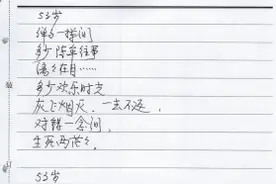 53岁
弹指一挥间
多少陈年往事
历历在目……
多少欢乐时光
灰飞烟灭,一去不返,
对错一念间,
生死两茫茫。
53岁